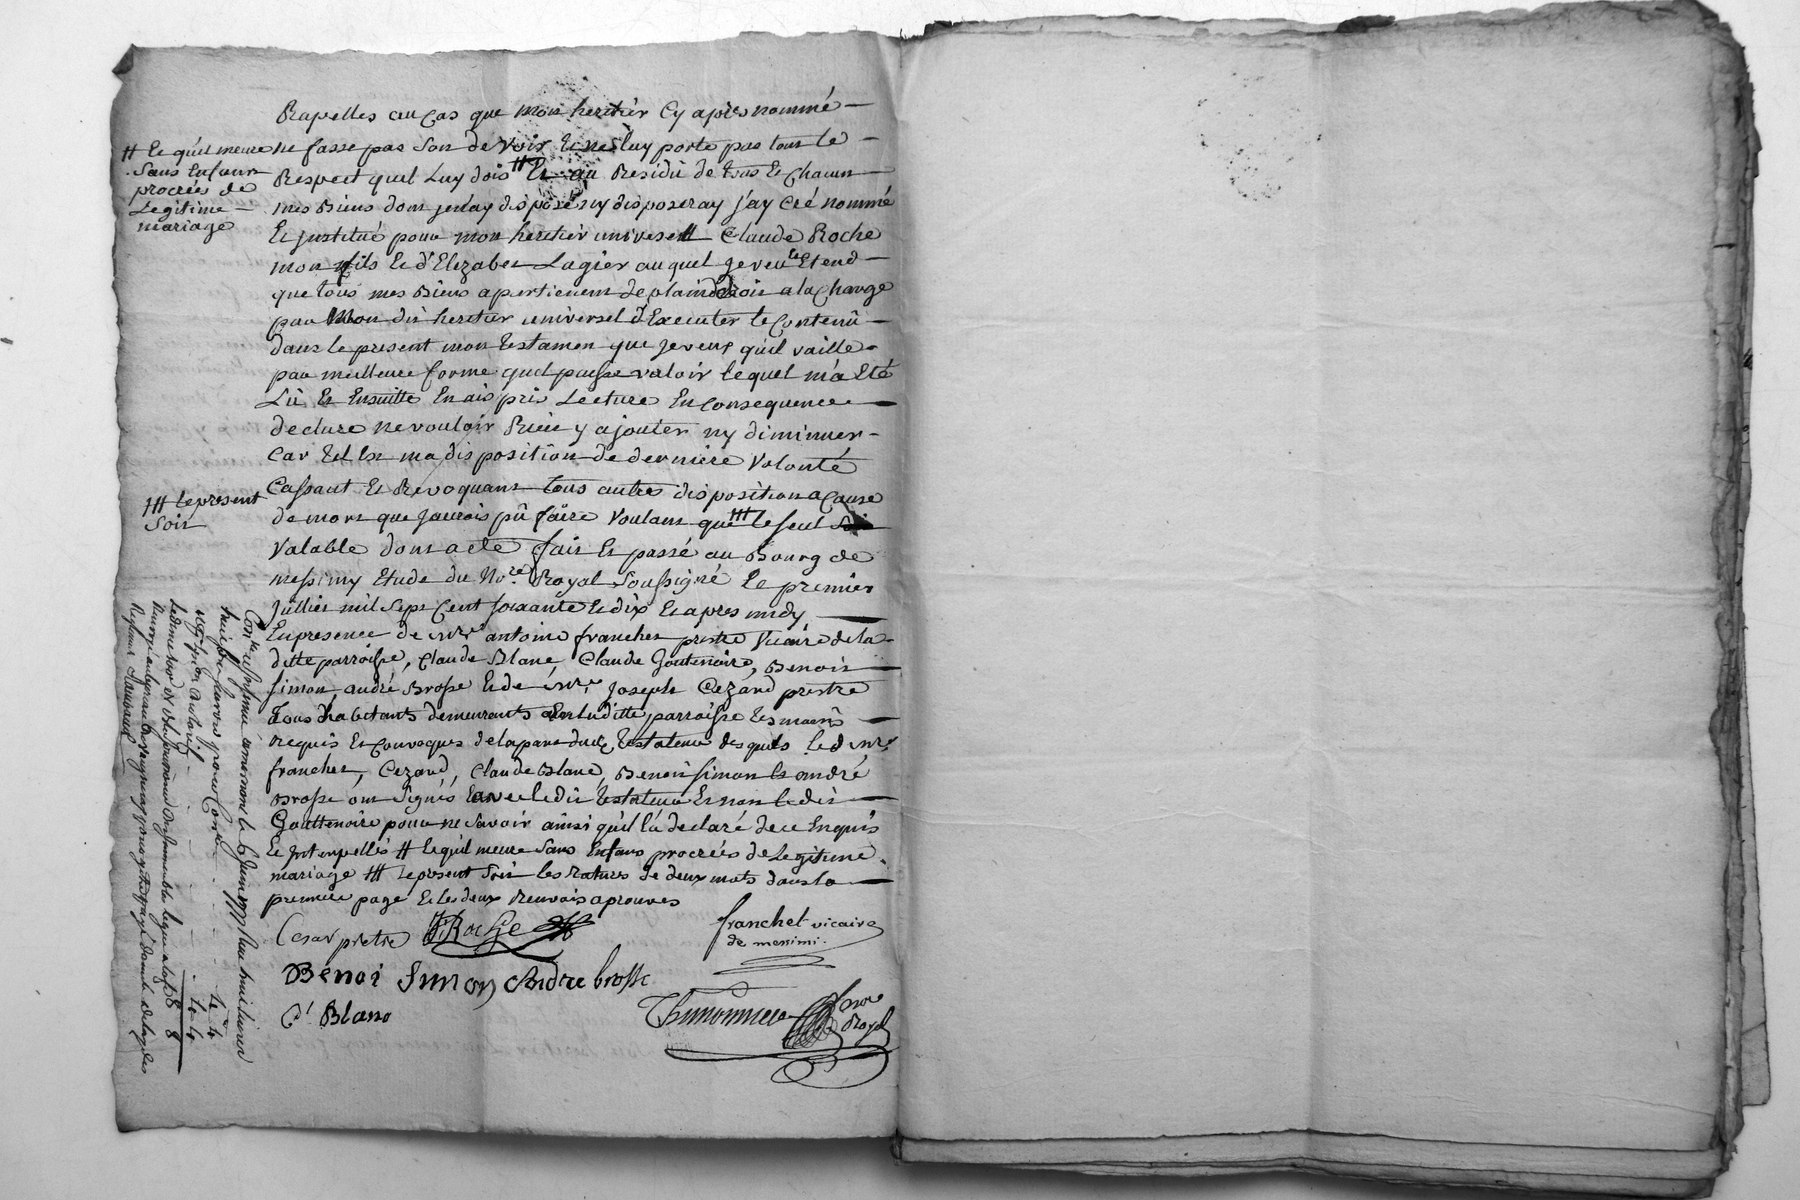 Rapelles au Cas que mon heritier Cy apres nommé
ne fasse pas Son de Voir Et ne Luy porte pas tout le
Respect quil Luy dois # Et au Residû de tous Et Chacun
mes Biens dont je n'ay disposé ny disposeray j'ay Créé nommé
Et Justitué pour mon heritier universell Claude Roche
mon fils Et d'Elizabet Lagier auquel je veu et Entend
que tous mes Biens apertienent de plain droit a la Charge
par Mon dit heritier universel d'Executer le Contenû
dans le present mon Testament que je veux qu'il vaille
par meilleure forme quil puisse valoir lequel m'a Eté
Lû Et Ensuitte En ais pris Lecture En Consequence
declare ne vouloir Rien y ajouter ny diminuer
Car tel Est ma disposition de derniere Volonté
Cassant Et Revoquant tous autres disposition a Cause
de mort que J'aurois pû faire Voulant que ### le seul
Valable dont acte fait Et passé au Bourg de
messimy Etude du No.re Royal Soussigné Le premier
Juillet mil Sept Cent soixante Et dix Et apres midy
En presence de mre antoine franchet prestre Vicaire de la
ditte parroisse, Claude Blanc, Claude Goutenoire, Benoit
Simon, andré Brosse Et de mre Joseph Cezard prestre
Tous habitants demeurants En laditte parroisse tesmoins
requis Et Convoqués de la part dudt testateur desquels le d mre
franchet, Cezard, Claude Blanc, Benoit Simon Et andré
Brosse ont Signés avec ledit testateur Et non ledit
Gouttenoire pour ne Savoir ainsi qu'il l'a declaré de ce Enquis
Et Interpellés # Et qu'il meure Sans Enfans procréés de Legitime
mariage ### le present Soit les ratures de deux mots dans la
premiere page Et les deux Renvois aprouvés
# Et qu'il meure
Sans Enfans
procréés de
Legitime
mariage
### le present
Soit
Cesar pretre
Roche
franchet vicaire
de messimi
Benoi Simon
Andre brosse
C. Blanc
Thimonnier
nore
Royal